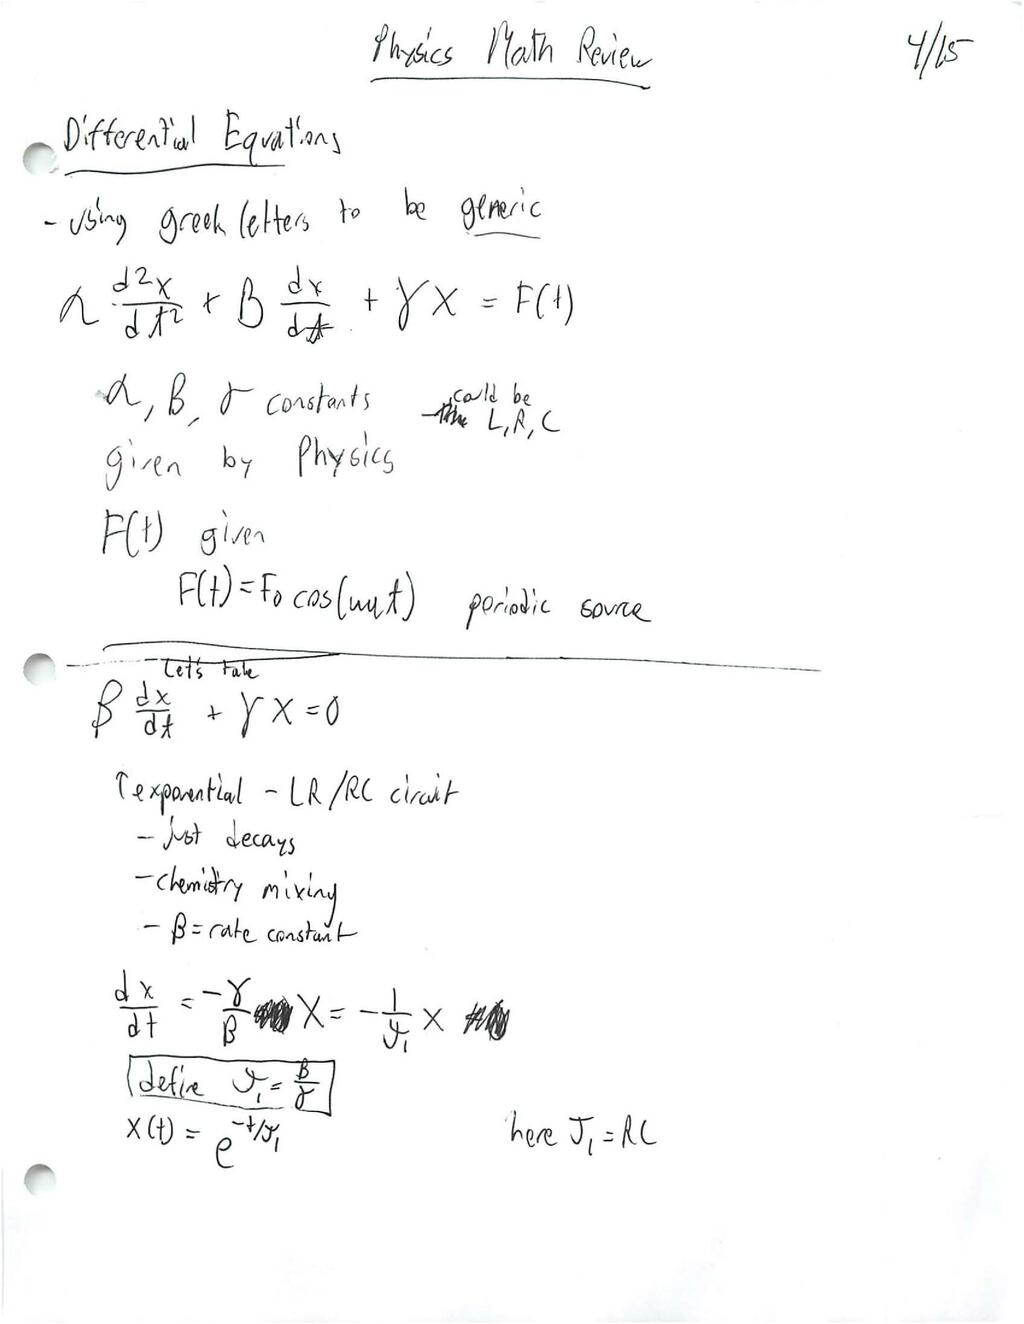 Physics Math Review
4/15
Differential Equations
- using greek letters to be generic
α d²x/dt² + β dx/dt + γ x = F(t)
α, β, γ constants could be
L, R, C
given by Physics
F(t) given
F(t) = F₀ cos(ωt) periodic source
Let's take
β dx/dt + γ x = 0
↑ exponential - LR/RC circuit
- just decays
- chemistry mixing
- β = rate constant
dx/dt = -γ/β x = - 1/τ₁ x
define τ₁ = β/γ
x(t) = e^(-t/τ₁) here τ₁ = RC